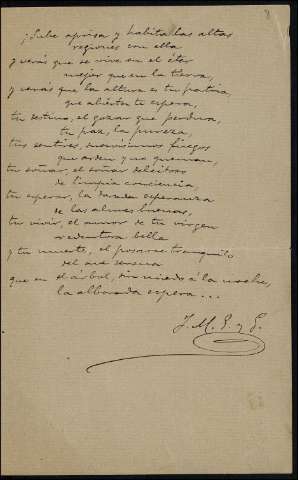 8
¡Sube aprisa y habita las altas
regiones con ella
y verás que se vive en el éter
mejor que en la tierra,
y verás que la altura es tu patria,
que abierta te espera,
tu destino, el gozar que perdura,
tu paz, la pureza,
tus sentires, suavísimos fuegos
que arden y no queman,
tu soñar, el soñar delicioso
de limpia conciencia,
tu esperar, la dorada esperanza
de las almas buenas,
tu vivir, el amor de tu virgen
redentora bella
y tu muerte, el posarse tranquilo
del ave serena
que en el árbol, sin miedo á la noche,
la alborada espera...
J. M. G. y G.